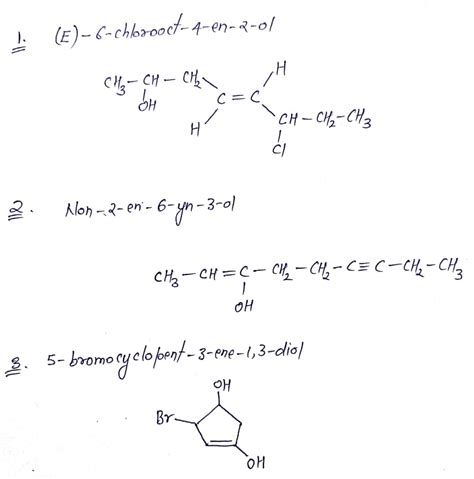 1. (E)-6-chlorooct-4-en-2-ol
H
CH3-CH-CH2
OH
C=C
H
CH-CH2-CH3
Cl
2. Non-2-en-6-yn-3-ol
CH3-CH=C-CH2-CH2-C≡C-CH2-CH3
OH
3. 5-bromocyclopent-3-ene-1,3-diol
OH
Br
OH